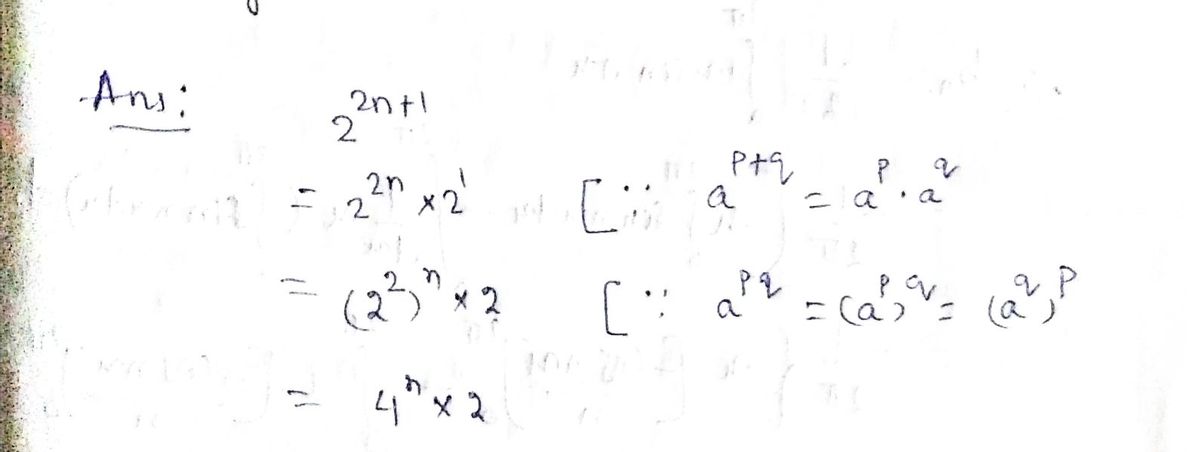 Ans:
2^{2n+1}
= 2^{2n} × 2^1 [∵ a^{p+q} = a^p · a^q
= (2^2)^n × 2 [∵ a^{pq} = (a^p)^q = (a^q)^p
= 4^n × 2